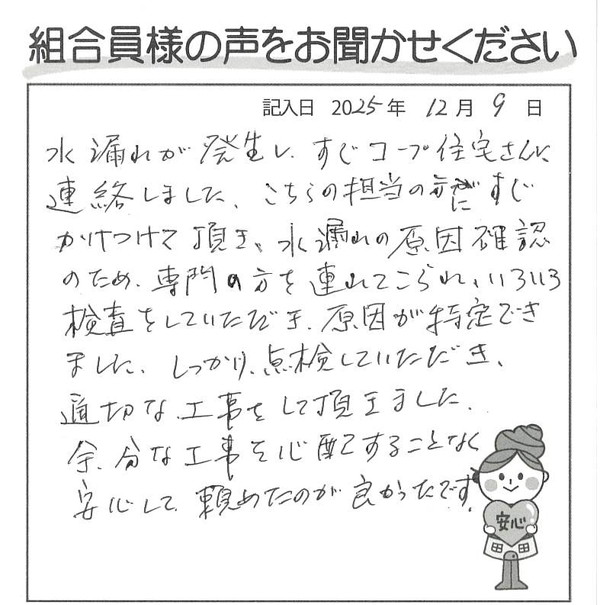 組合員様の声をお聞かせください
記入日 2025年 12月 9日
水漏れが発生し、すぐコープ住宅さんに
連絡しました。こちらの担当の方にすぐ
かけつけて頂き、水漏れの原因確認
のため、専門の方を連れてこられ、いろいろ
検査をしていただき、原因が特定でき
ました。しっかり、点検していただき、
適切な工事をして頂きました。
余分な工事を心配することなく
安心して頼めたのが良かったです。
安心